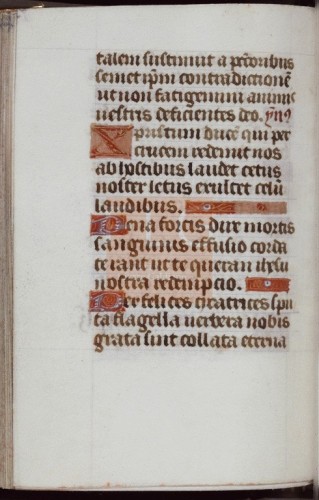 talem sustinuit a pctoribus
semet ipm contradictionē
ut non fatigemini animis
uestris deficientes deo. ymꝰ
Xpristum ducē qui per
crucem redemit nos
ab hostibus laudet cetus
noster letus exultet celū
laudibus.
Pena fortis dire mortis
sanguinis effusio corda
terant ut te querant ihesu
nostra redempcio.
Per felices cicatrices spu
ta flagella uerbera nobis
grata sint collata eterna